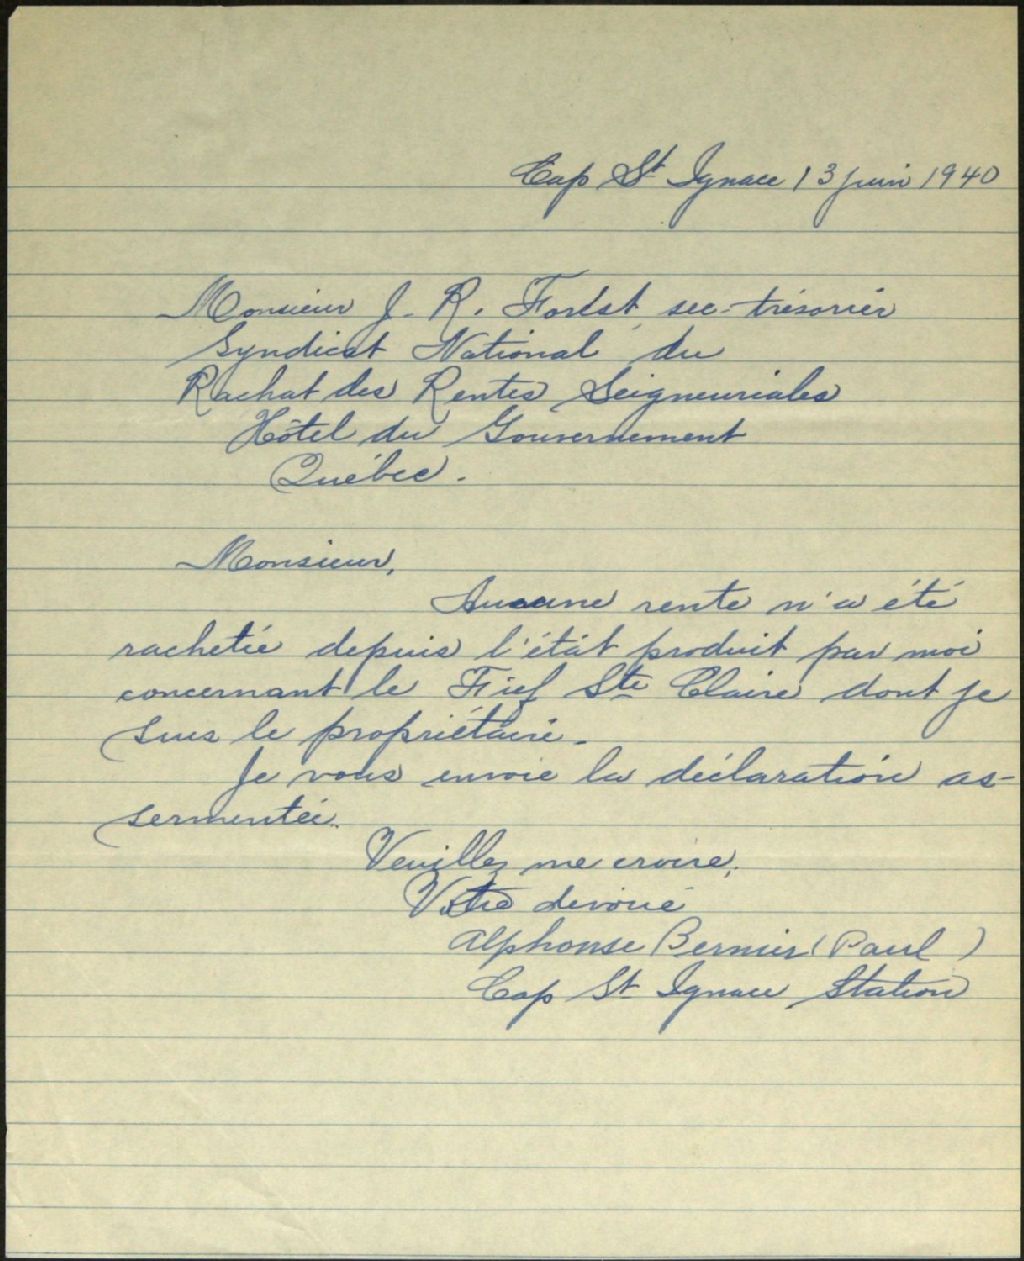 Cap St Ignace 13 juin 1940
Monsieur J. R. Forest sec-trésorier
Syndicat National du
Rachat des Rentes Seigneuriales
Hôtel du Gouvernement
Québec.
Monsieur,
Aucune rente n'a été
rachetée depuis l'état produit par moi
concernant le Fief Ste Claire dont je
suis le propriétaire.
Je vous envoie la déclaration as-
sermentée.
Veuillez me croire,
Votre dévoué
Alphonse Bernier (Paul)
Cap St Ignace Station